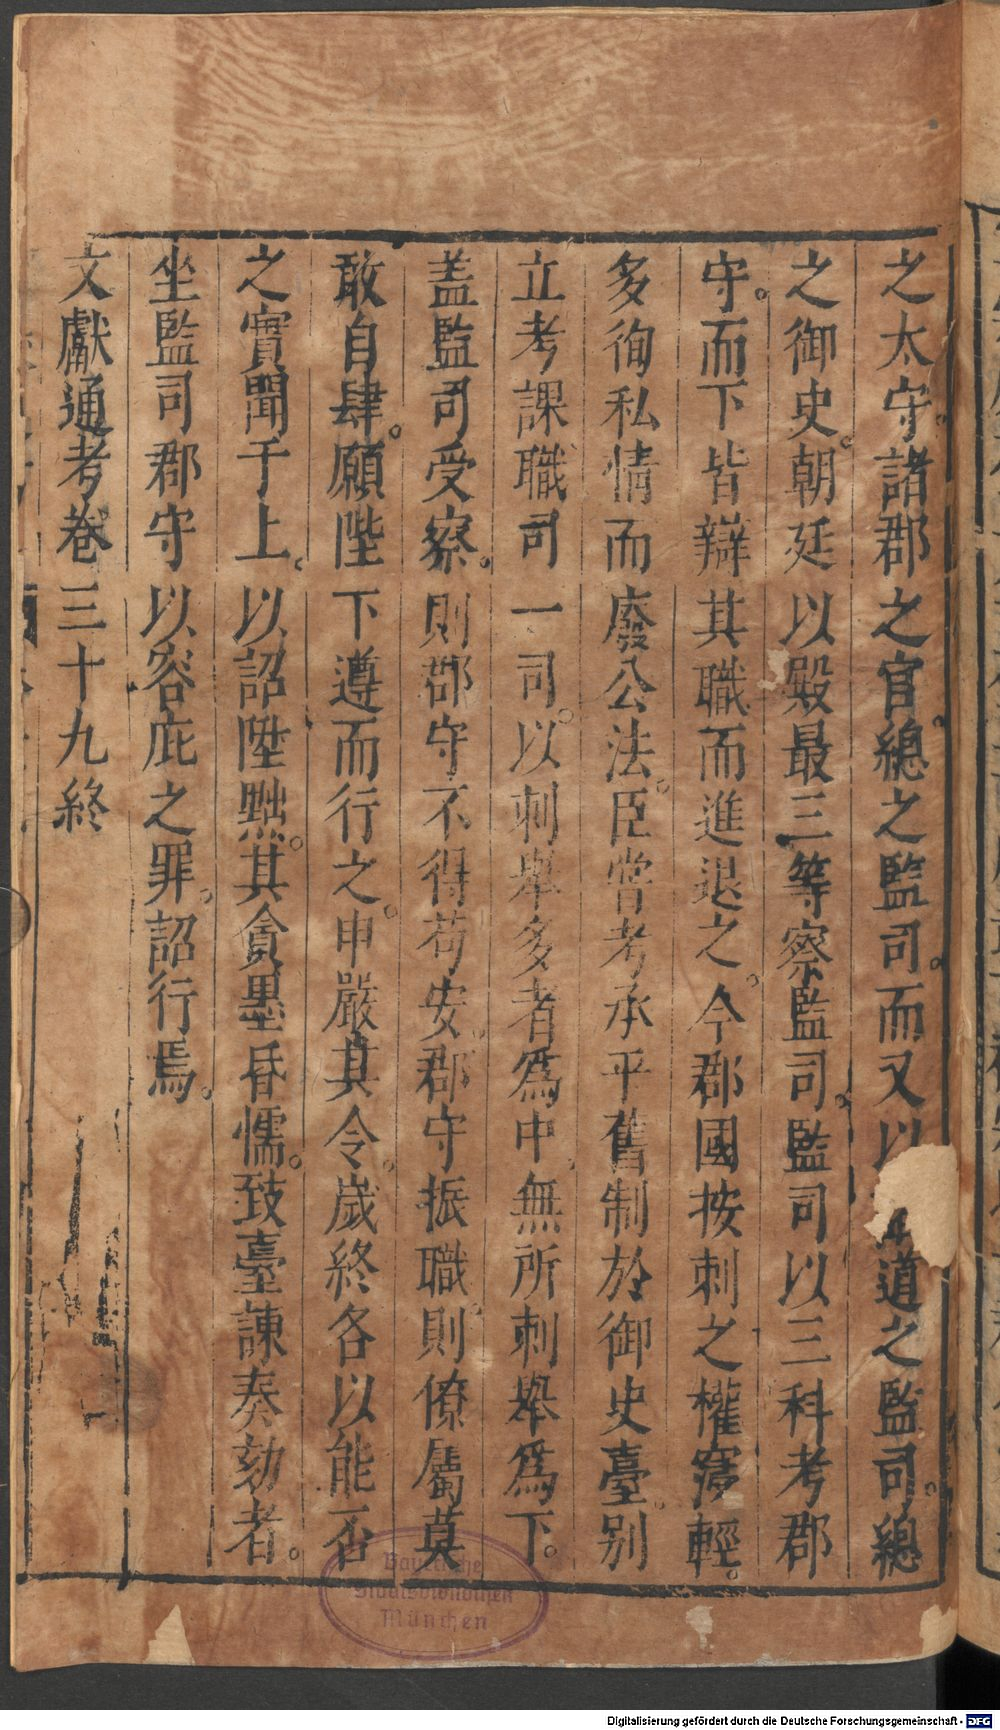 之太守。諸郡之官。總之監司。而又以道之監司。總
之御史。朝廷以殿最三等察監司。監司以三科考郡
守。而下皆辯其職而進退之。今郡國按刺之權寖輕。
多徇私情而廢公法。臣嘗考承平舊制於御史臺。别
立考課職司一司。以刺舉多者爲中。無所刺舉爲下。
盖監司受察。則郡守不得苟安。郡守振職。則僚屬莫
敢自肆。願陛下遵而行之。申嚴其令。歲終各以能否
之實聞于上。以詔陞黜。其貪墨昏懦。致臺諫奏劾者。
坐監司郡守以容庇之罪。詔行焉。
文獻通考卷三十九終
Bayerische
Staatsbibliothek
München
Digitalisierung gefördert durch die Deutsche Forschungsgemeinschaft - DFG